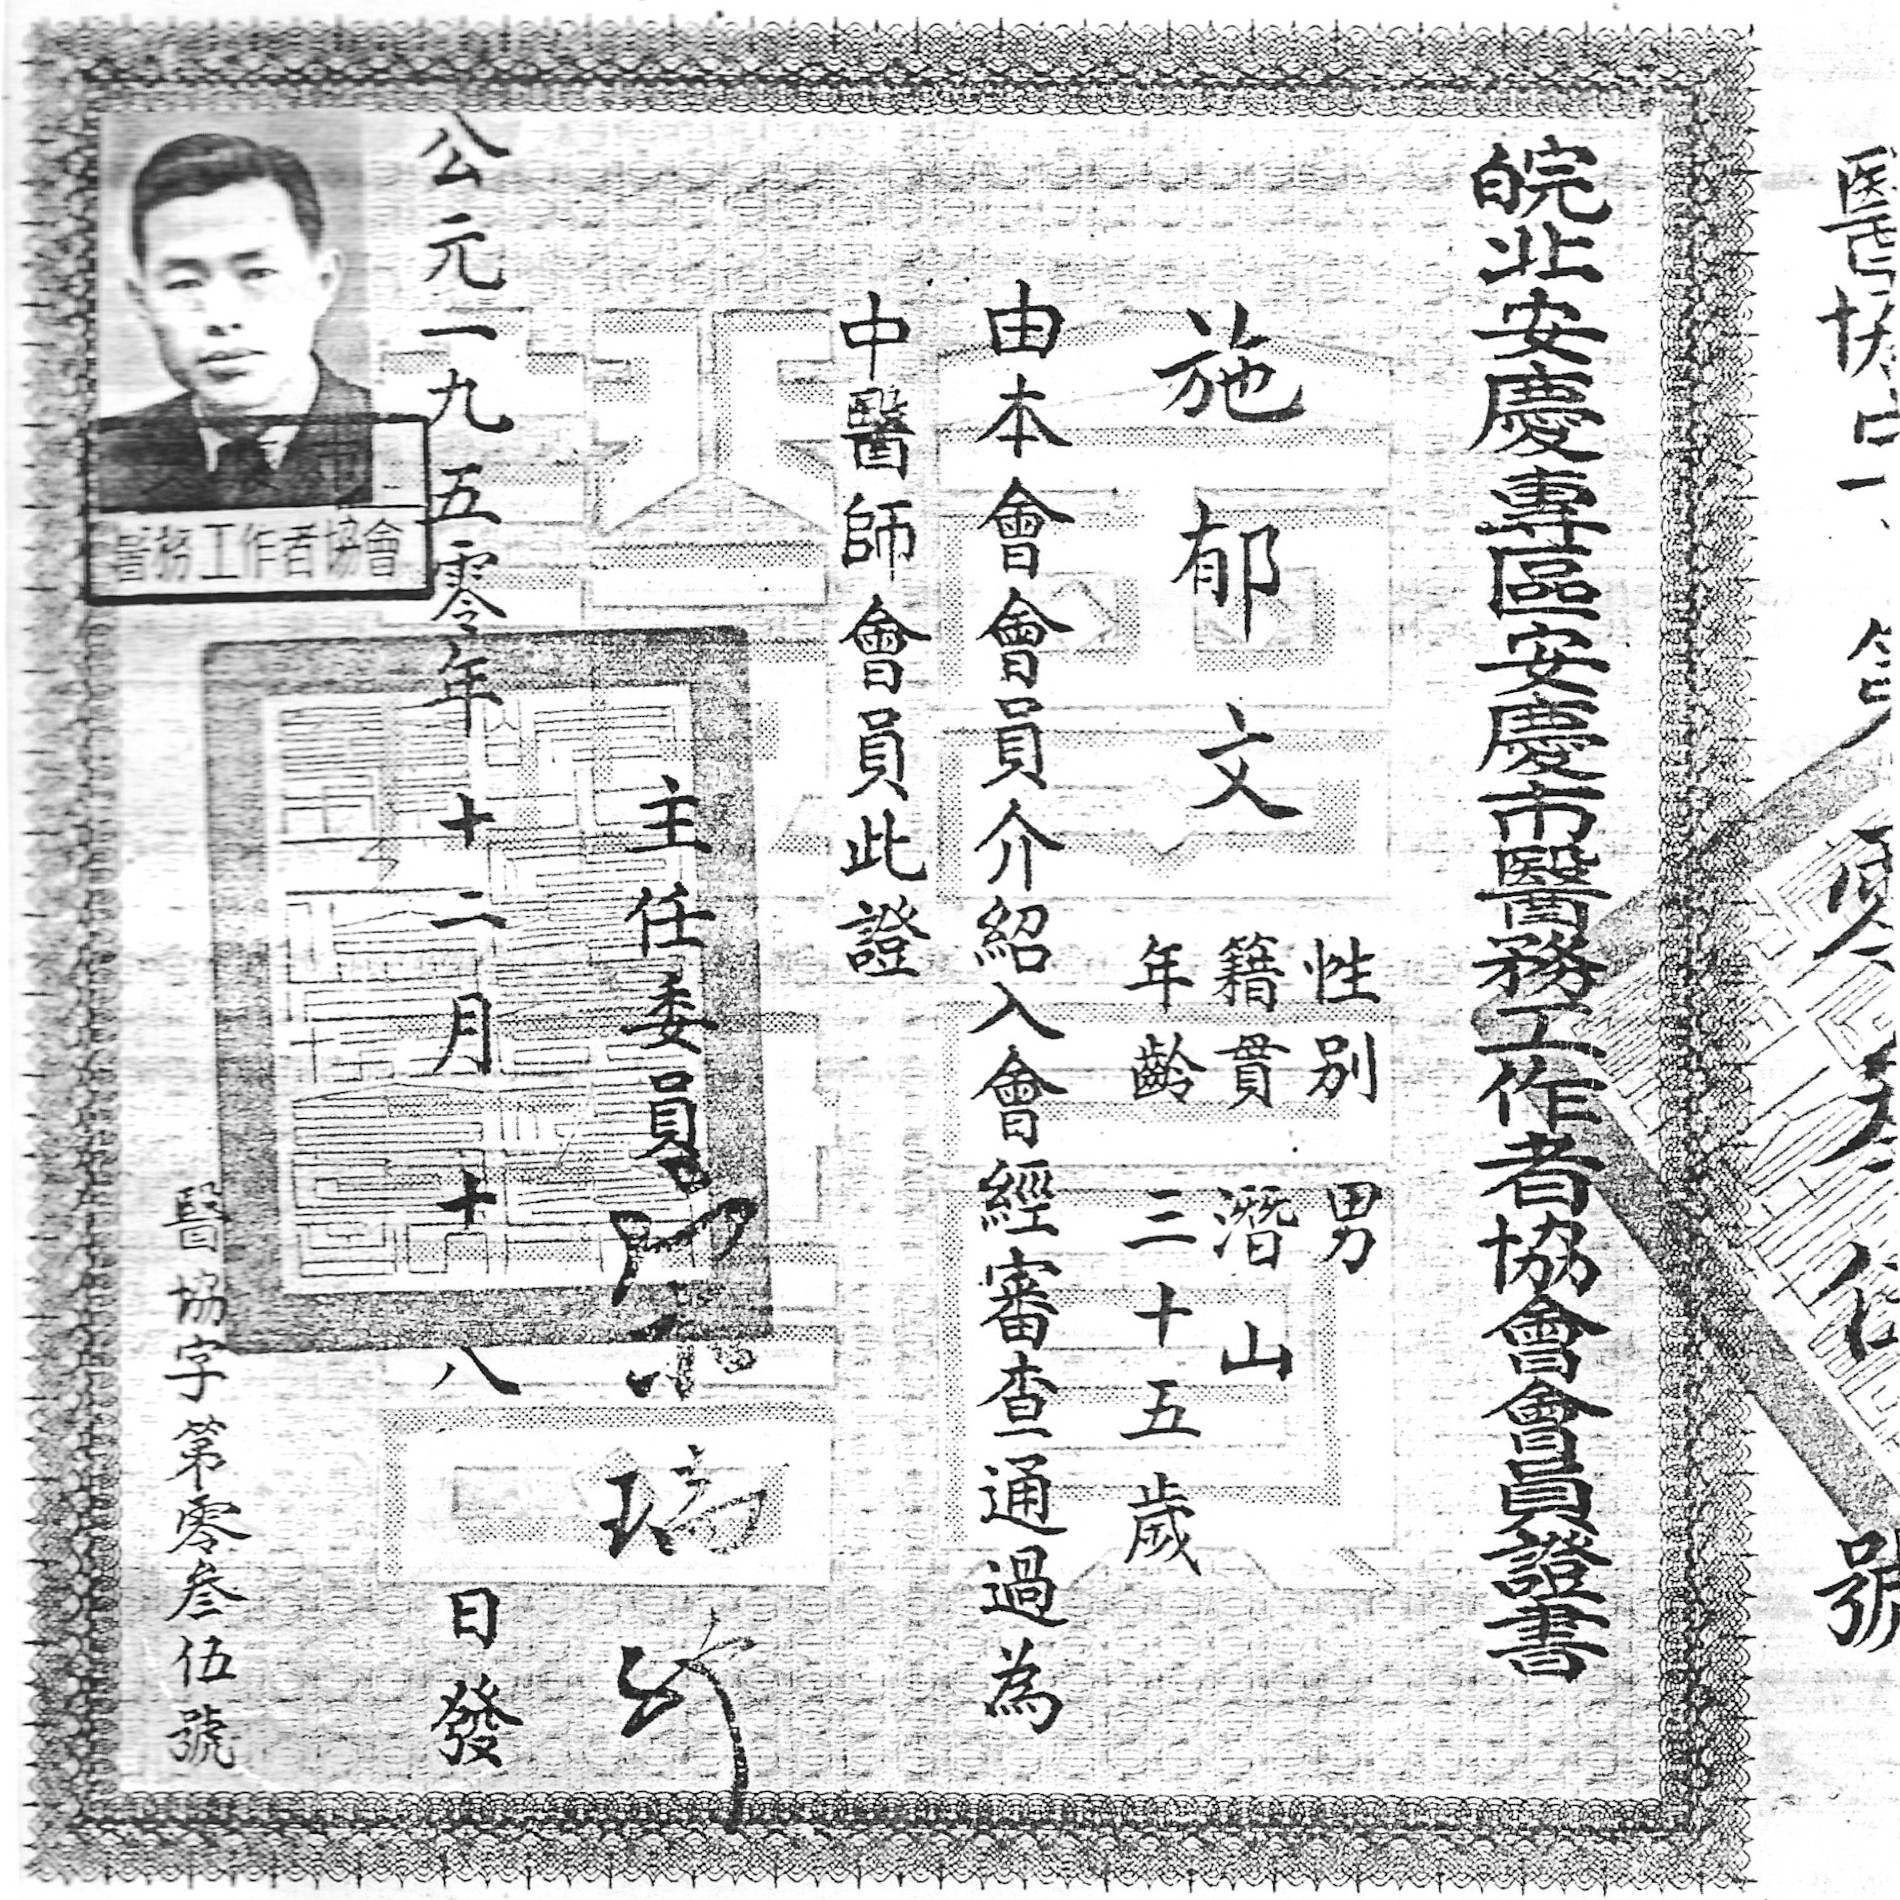 皖北安慶專區安慶市醫務工作者協會會員證書
施郁文
性別 男
籍貫 潛山
年齡 三十五歲
由本會會員介紹入會經審查通過為
中醫師會員此證
主任委員
公元一九五零年十二月十八日發
醫協字第零叁伍號
醫務工作者協會
號